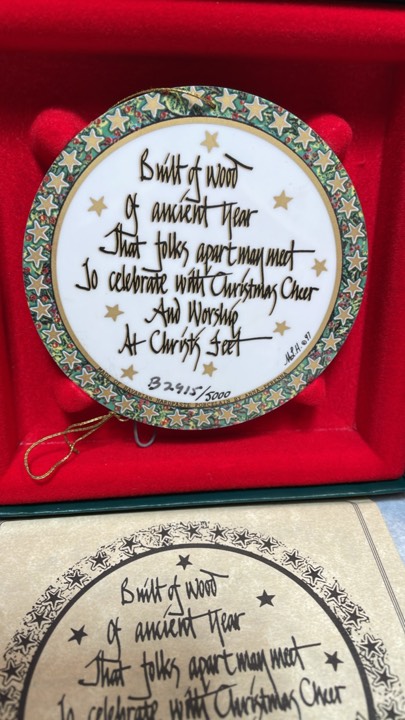 Built of wood
Of ancient Year
That folks apart may meet
To celebrate with Christmas Cheer
And Worship
At Christ's Feet
B2915/5000
Built of wood
Of ancient Year
That folks apart may meet
To celebrate with Christmas Cheer